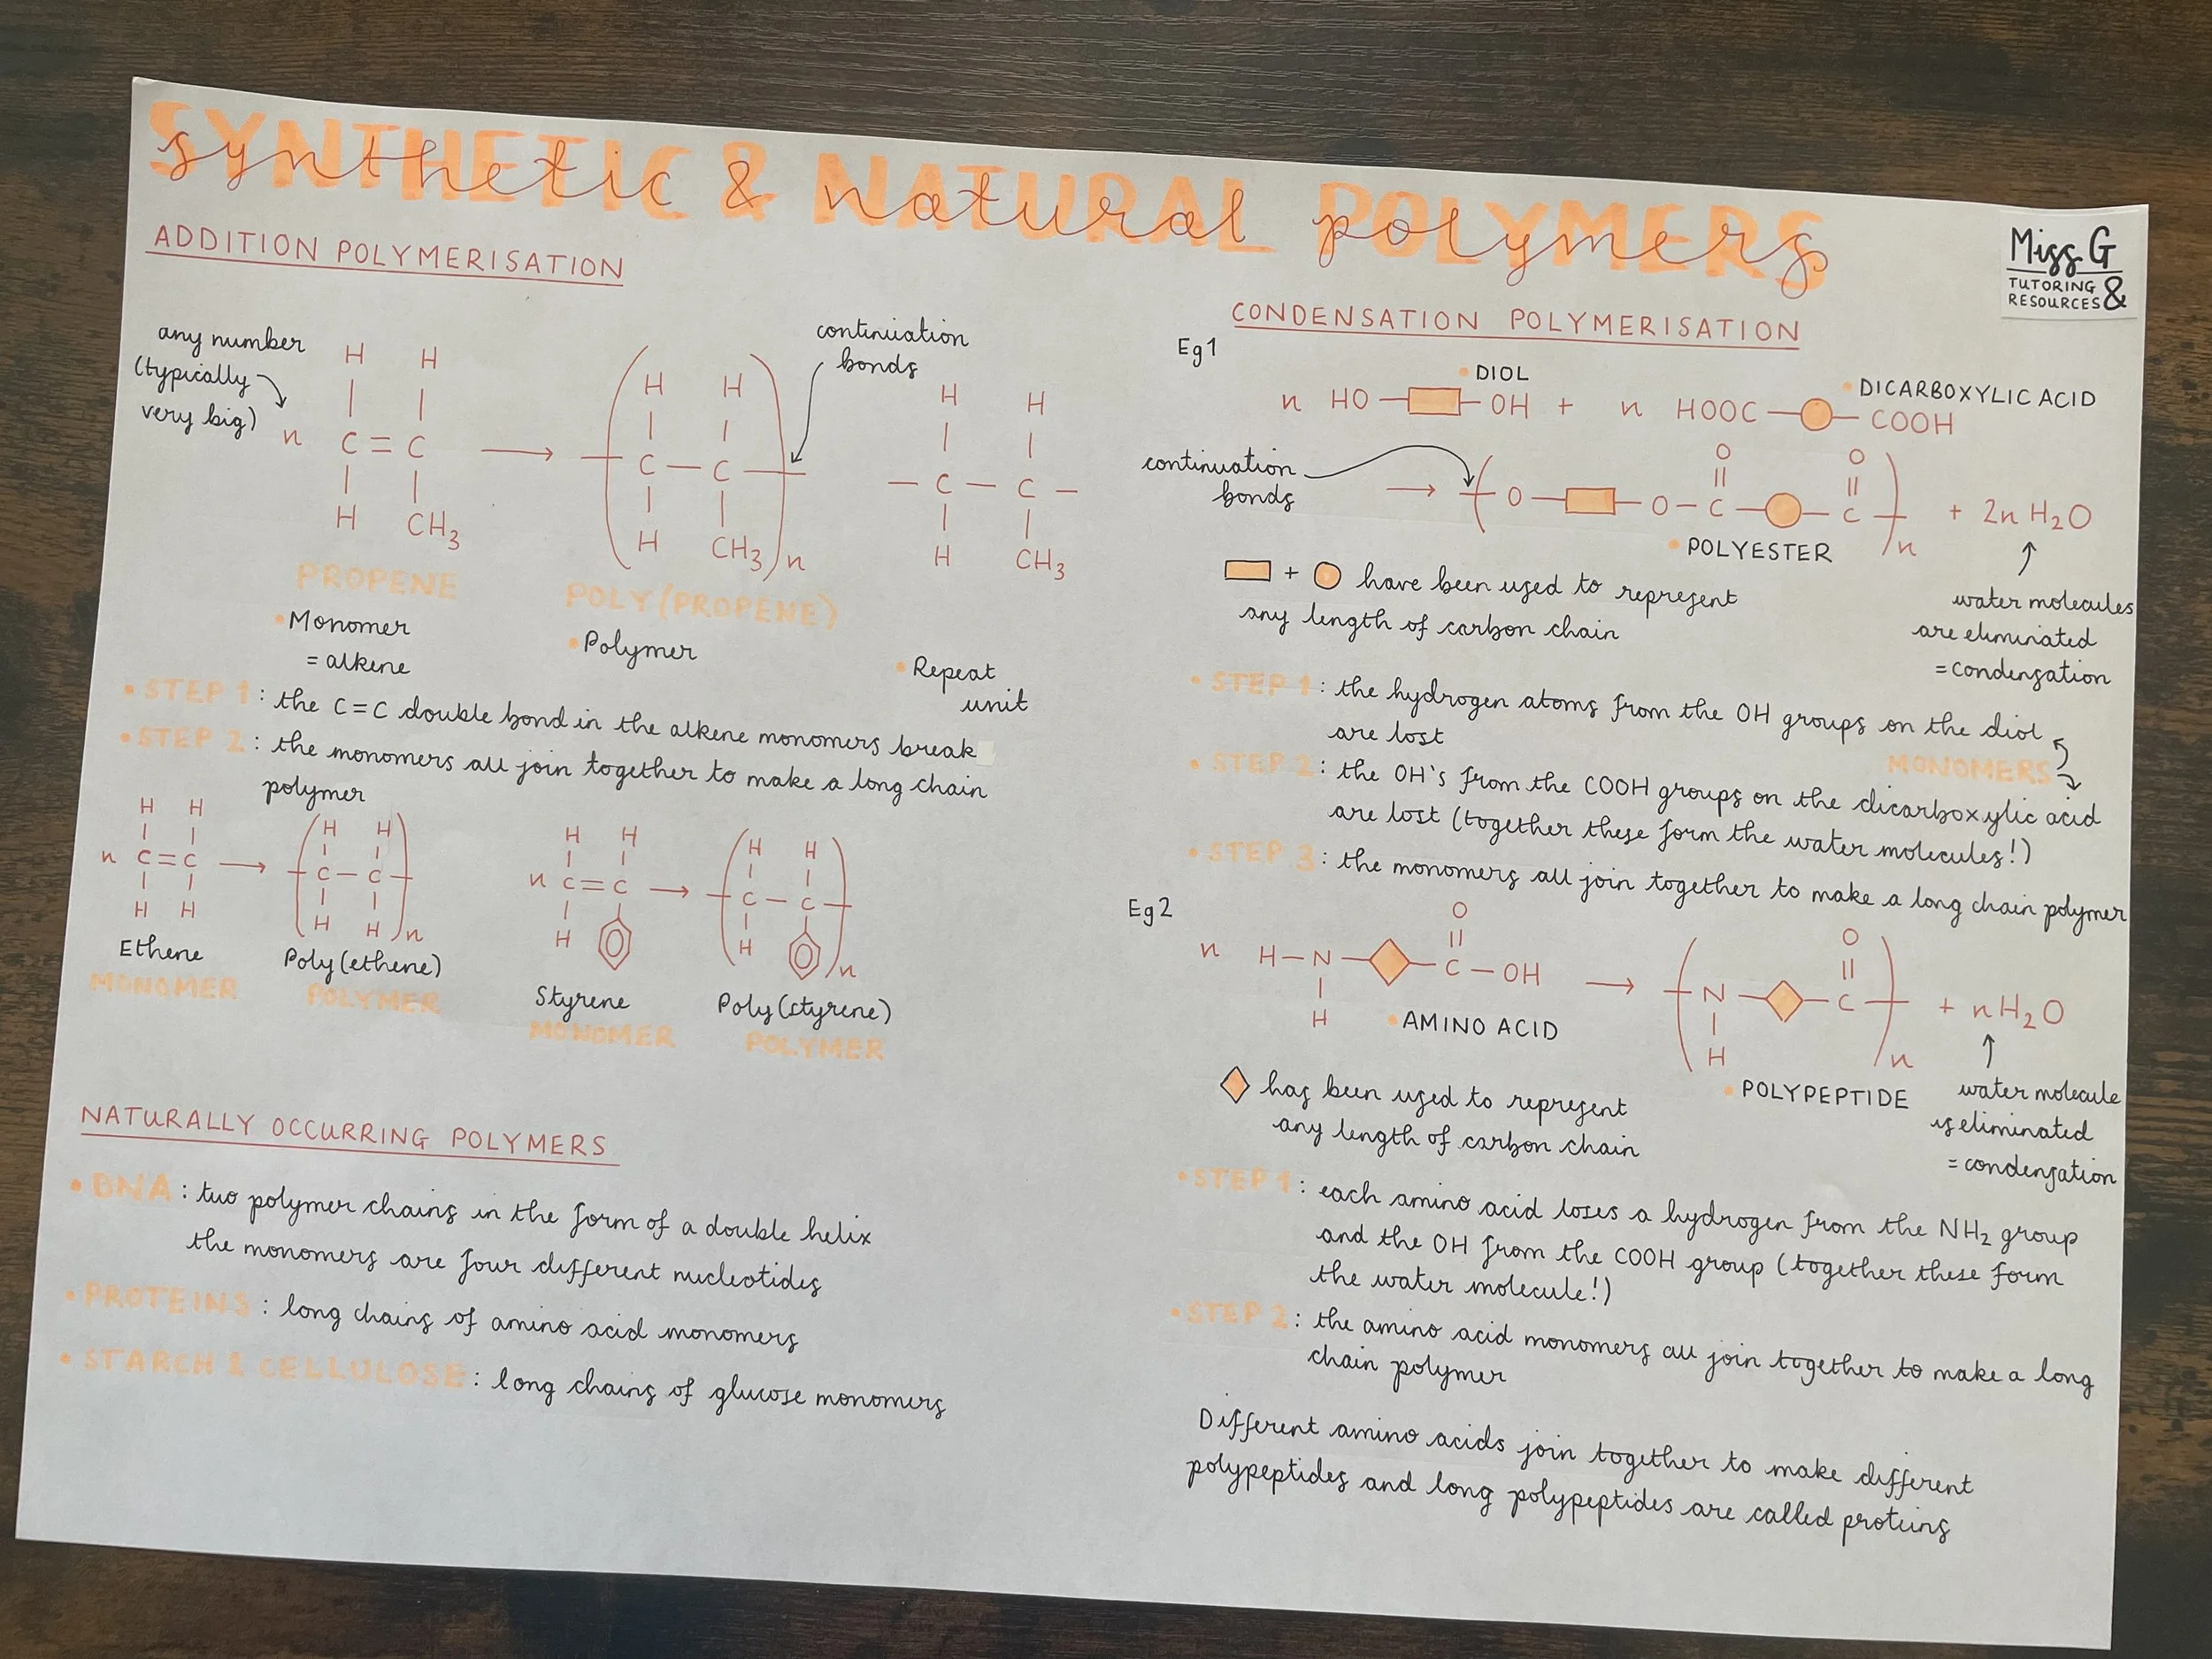 SYNTHETIC & NATURAL POLYMERS
synthetic & natural polymers
Miss G
TUTORING &
RESOURCES
ADDITION POLYMERISATION
any number
(typically
very big)
continuation
bonds
H H
n C = C
H CH3
→
H H
C — C
H CH3 n
H H
— C — C —
H CH3
PROPENE
• Monomer
= alkene
POLY (PROPENE)
• Polymer
• Repeat
unit
• STEP 1 : the C=C double bond in the alkene monomers break
• STEP 2 : the monomers all join together to make a long chain
polymer
H H
n C = C
H H
→
H H
C — C
H H n
Ethene
MONOMER
Poly (ethene)
POLYMER
H H
n C = C
H
→
H H
C — C
H n
Styrene
MONOMER
Poly (styrene)
POLYMER
NATURALLY OCCURRING POLYMERS
• DNA : two polymer chains in the form of a double helix
the monomers are four different nucleotides
• PROTEINS : long chains of amino acid monomers
• STARCH & CELLULOSE : long chains of glucose monomers
CONDENSATION POLYMERISATION
Eg1
• DIOL
• DICARBOXYLIC ACID
n HO — — OH + n HOOC — — COOH
continuation
bonds
O O
→ — O — — O — C — — C — n + 2n H2O
• POLYESTER
+ have been used to represent
any length of carbon chain
water molecules
are eliminated
= condensation
• STEP 1 : the hydrogen atoms from the OH groups on the diol
are lost
MONOMERS
• STEP 2 : the OH's from the COOH groups on the dicarboxylic acid
are lost (together these form the water molecules!)
• STEP 3 : the monomers all join together to make a long chain polymer
Eg2
O
n H — N — — C — OH
H
• AMINO ACID
→
O
— N — — C — + nH2O
H n
• POLYPEPTIDE
has been used to represent
any length of carbon chain
water molecule
is eliminated
= condensation
• STEP 1 : each amino acid loses a hydrogen from the NH2 group
and the OH from the COOH group (together these form
the water molecule!)
• STEP 2 : the amino acid monomers all join together to make a long
chain polymer
Different amino acids join together to make different
polypeptides and long polypeptides are called proteins